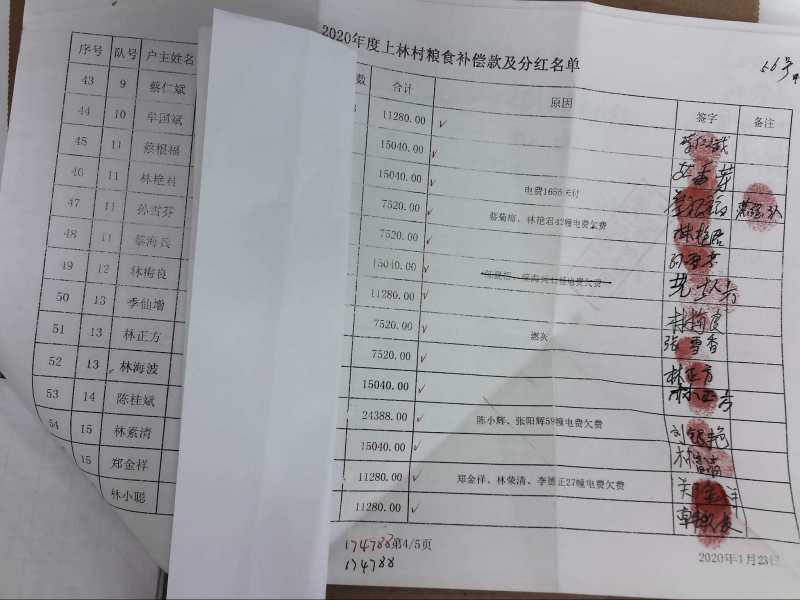 2020年度上林村粮食补偿款及分红名单
56号
序号 队号 户主姓名 数 合计 原因 签字 备注
43 9 蔡仁斌 11280.00 ✓
44 10 牟国斌 15040.00 ✓
45 11 蔡根福 15040.00 ✓ 电费1655未付
46 11 林艳君 7520.00 ✓ 蔡菊梅、林艳君42幢电费欠费 林艳君
47 11 孙雪芬 7520.00 ✓
48 11 蔡海民 15040.00 ✓
49 12 林梅良 11280.00 ✓ 林梅良
50 13 季仙增 7520.00 ✓ 张雪香
51 13 林正方 7520.00 ✓ 林正方
52 13 林海波 15040.00 ✓ 林正方
53 14 陈桂斌 24388.00 ✓ 陈小辉、张阳辉59幢电费欠费
54 15 林素清 15040.00 ✓
15 郑金祥 11280.00 ✓ 郑金祥、林荣清、李德正27幢电费欠费 郑金祥
林小聪 11280.00 ✓
174788 第4/5页
174788
2020年1月23日